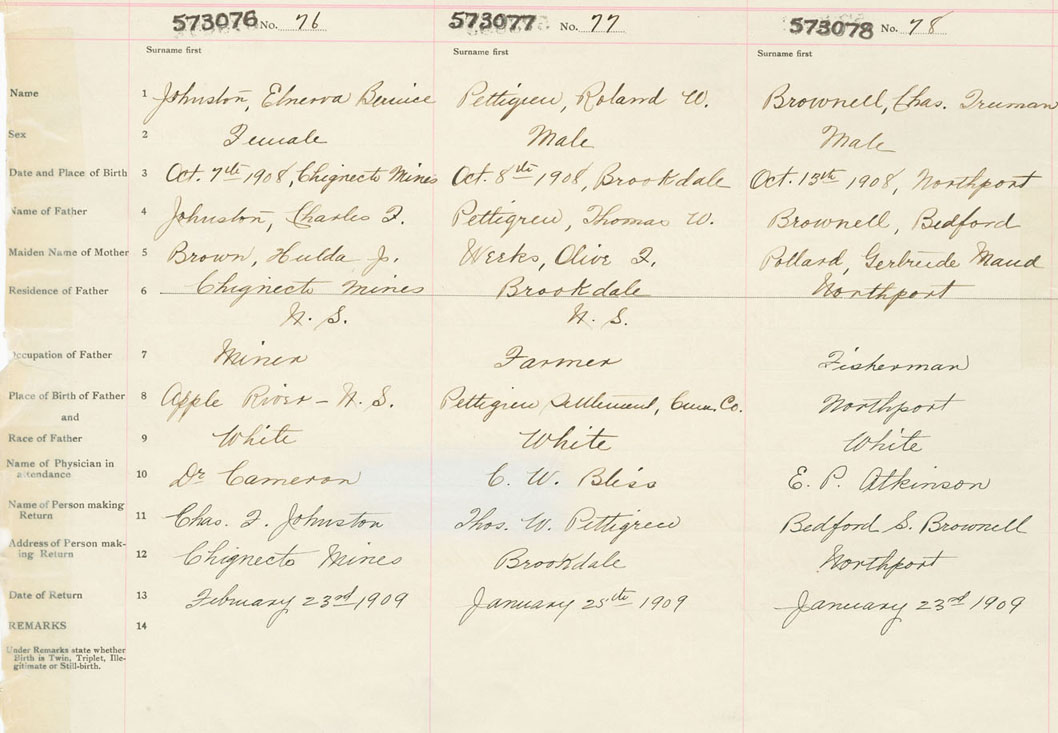 573076 No. 76 573077 No. 77 573078 No. 78
Surname first Surname first Surname first
Name 1 Johnston, Elnerva Bernice Pettigrew, Roland W. Brownell, Chas. Truman
Sex 2 Female Male Male
Date and Place of Birth 3 Oct. 7th 1908, Chignecto Mines Oct. 8th 1908, Brookdale Oct. 13th 1908, Northport
Name of Father 4 Johnston, Charles F. Pettigrew, Thomas W. Brownell, Bedford
Maiden Name of Mother 5 Brown, Hulda J. Weeks, Olive F. Pollard, Gertrude Maud
Residence of Father 6 Chignecto Mines Brookdale Northport
N. S. N. S.
Occupation of Father 7 Miner Farmer Fisherman
Place of Birth of Father 8 Apple River – N. S. Pettigrew Settlement, Cum. Co. Northport
and
Race of Father 9 White White White
Name of Physician in
attendance 10 Dr Cameron C. W. Bliss E. P. Atkinson
Name of Person making
Return 11 Chas. F. Johnston Thos. W. Pettigrew Bedford S. Brownell
Address of Person mak-
ing Return 12 Chignecto Mines Brookdale Northport
Date of Return 13 February 23rd 1909 January 25th 1909 January 23rd 1909
REMARKS 14
Under Remarks state whether
Birth is Twin, Triplet, Ille-
gitimate or Still-birth.